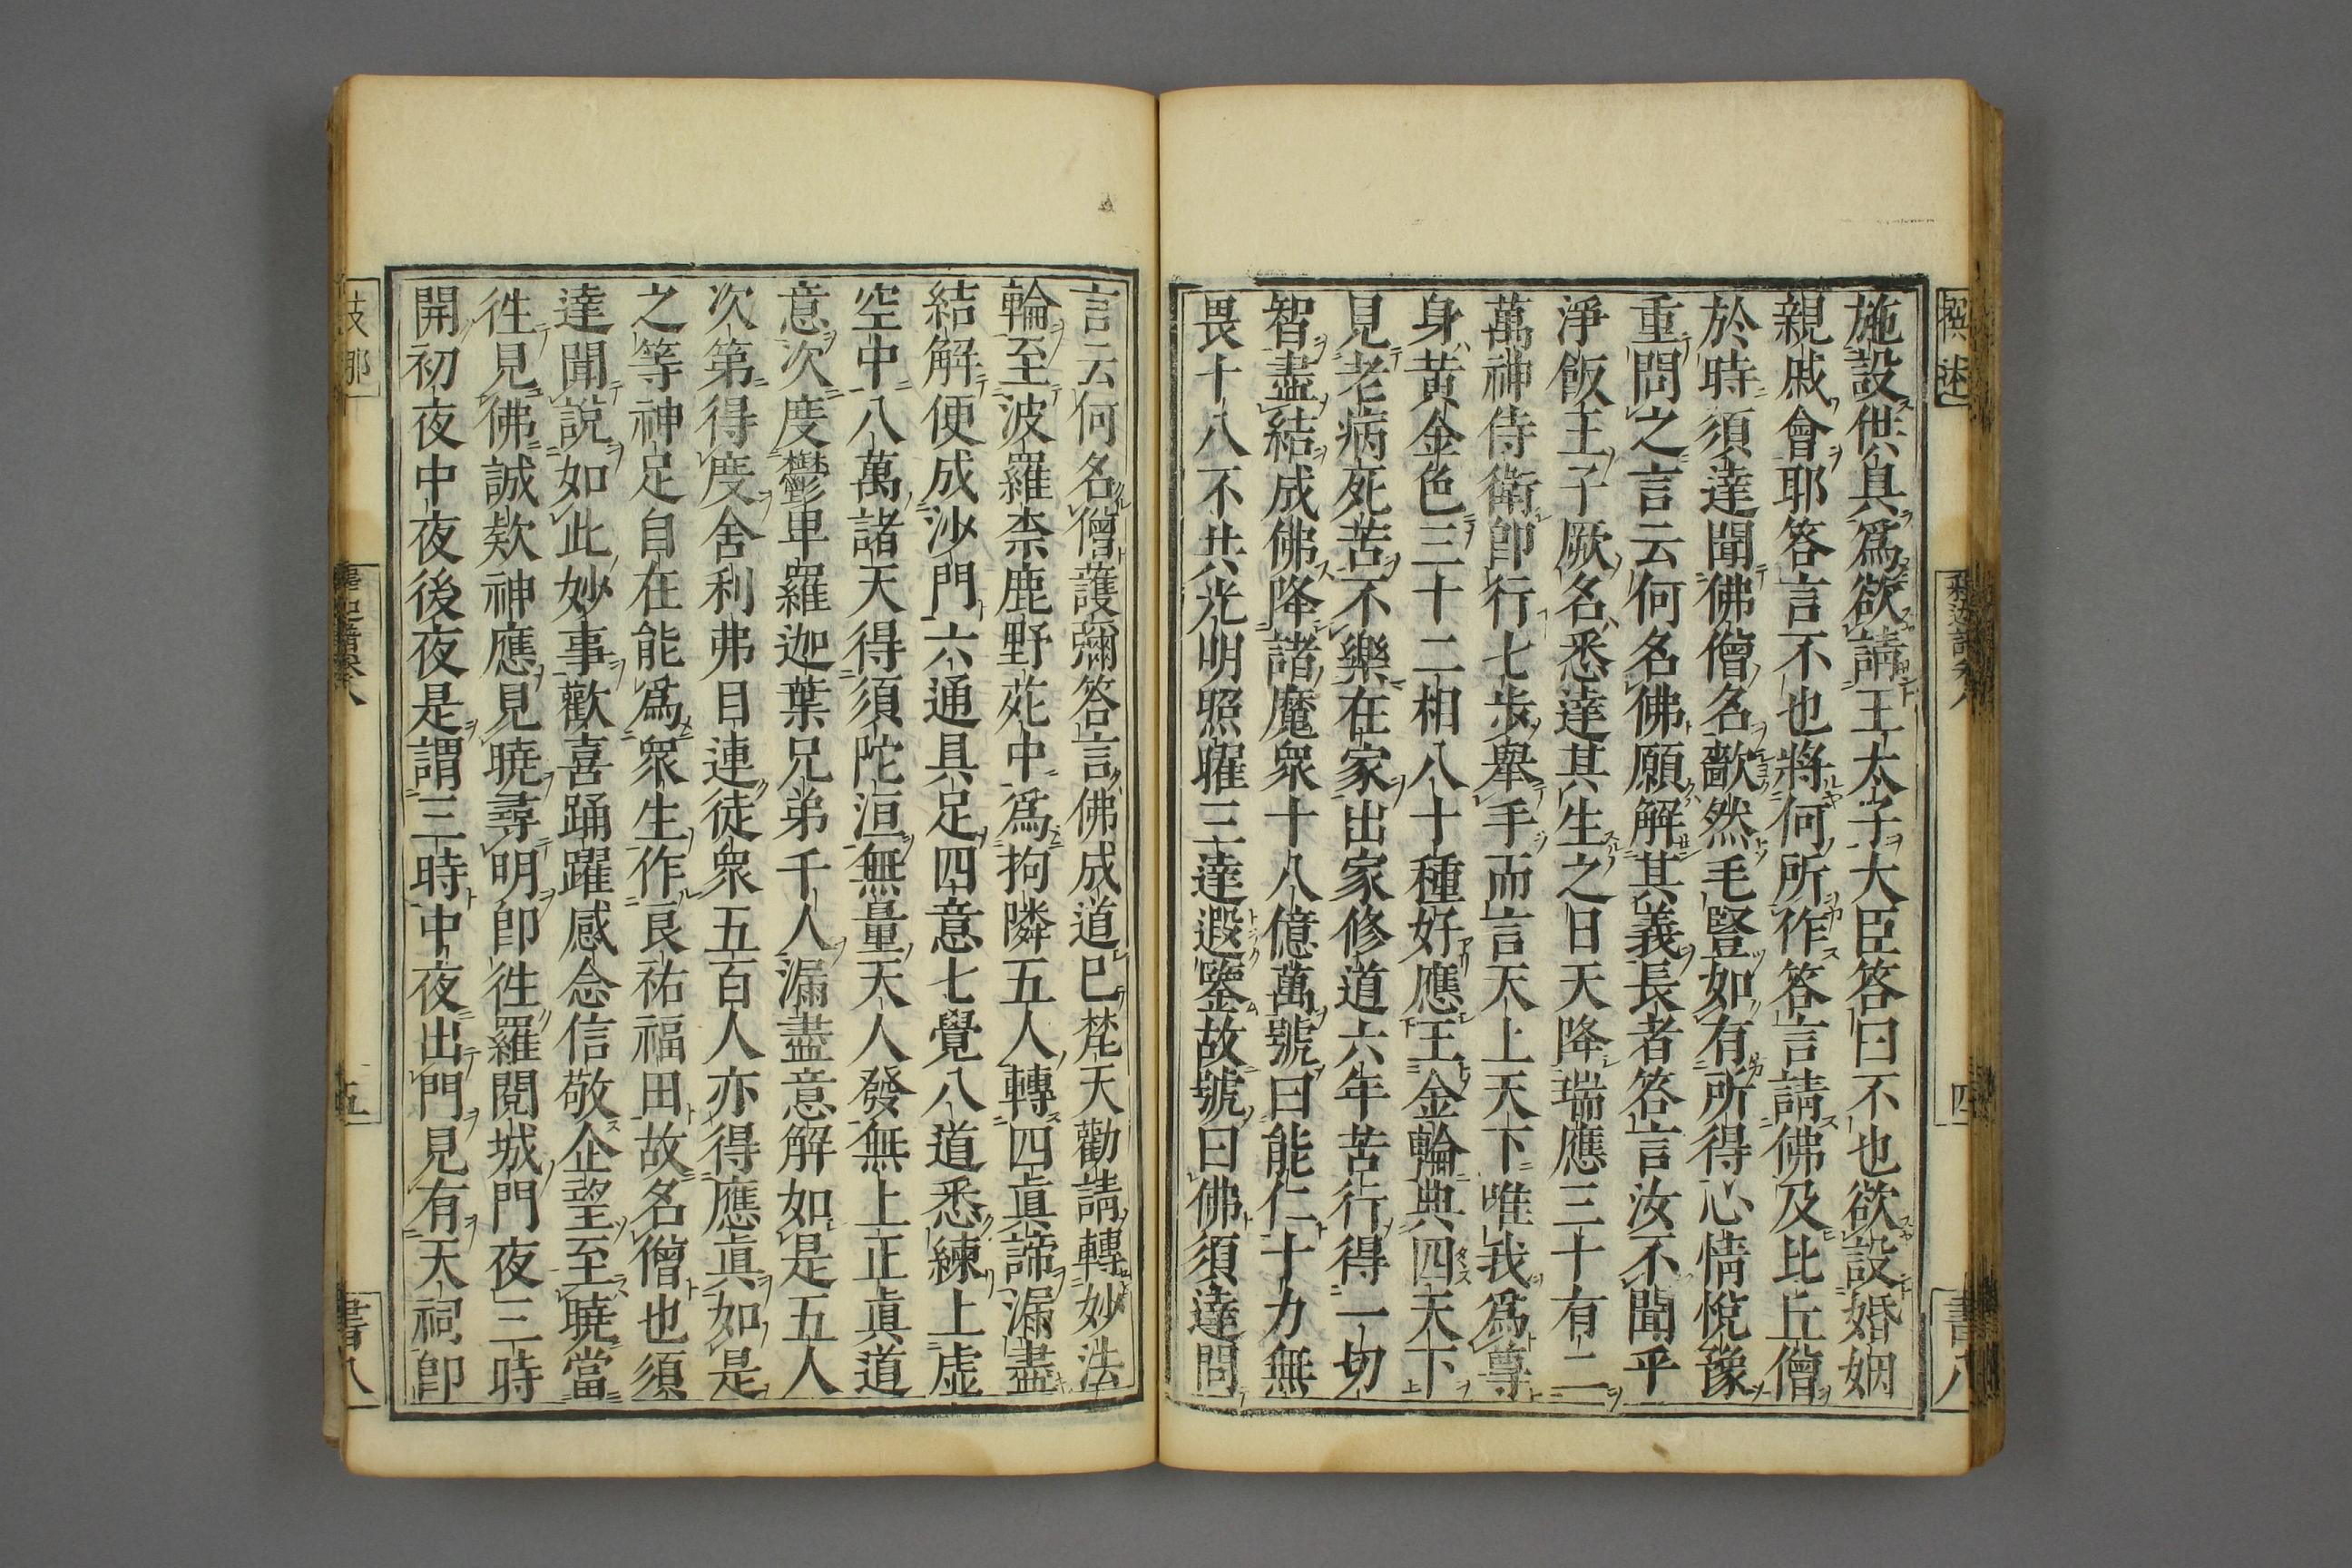 施設供具爲欲請王太子大臣答曰不也欲設婚姻
親戚會耶答言不也將何所作答言請佛及比丘僧
於時須達聞佛僧名歡然毛豎如有所得心情悅豫
重問之言云何名佛願解其義長者答言汝不聞乎
淨飯王子厥名悉達其生之日天降瑞應三十有二
萬神侍衛卽行七步舉手而言天上天下唯我爲尊
身黃金色三十二相八十種好應王金輪典四天下
見老病死苦不樂在家出家修道六年苦行得一切
智盡結成佛降諸魔衆十八億萬號曰能仁十力無
畏十八不共光明照曜三達遐鑒故號曰佛須達問
言云何名僧護彌答言佛成道已梵天勸請轉妙法
輪至波羅柰鹿野苑中爲拘隣五人轉四眞諦漏盡
結解便成沙門六通具足四意七覺八道悉練上虛
空中八萬諸天得須陀洹無量天人發無上正眞道
意次度鬱卑羅迦葉兄弟千人漏盡意解如是五人
次第得度舍利弗目連徒衆五百人亦得應眞如是
之等神足自在能爲衆生作良祐福田故名僧也須
達聞說如此妙事歡喜踊躍感念信敬企望至曉當
徃見佛誠欵神應見曉尋明卽徃羅閱城門夜三時
開初夜中夜後夜是謂三時中夜出門見有天祠卽
撰述
四
書八
五
書八